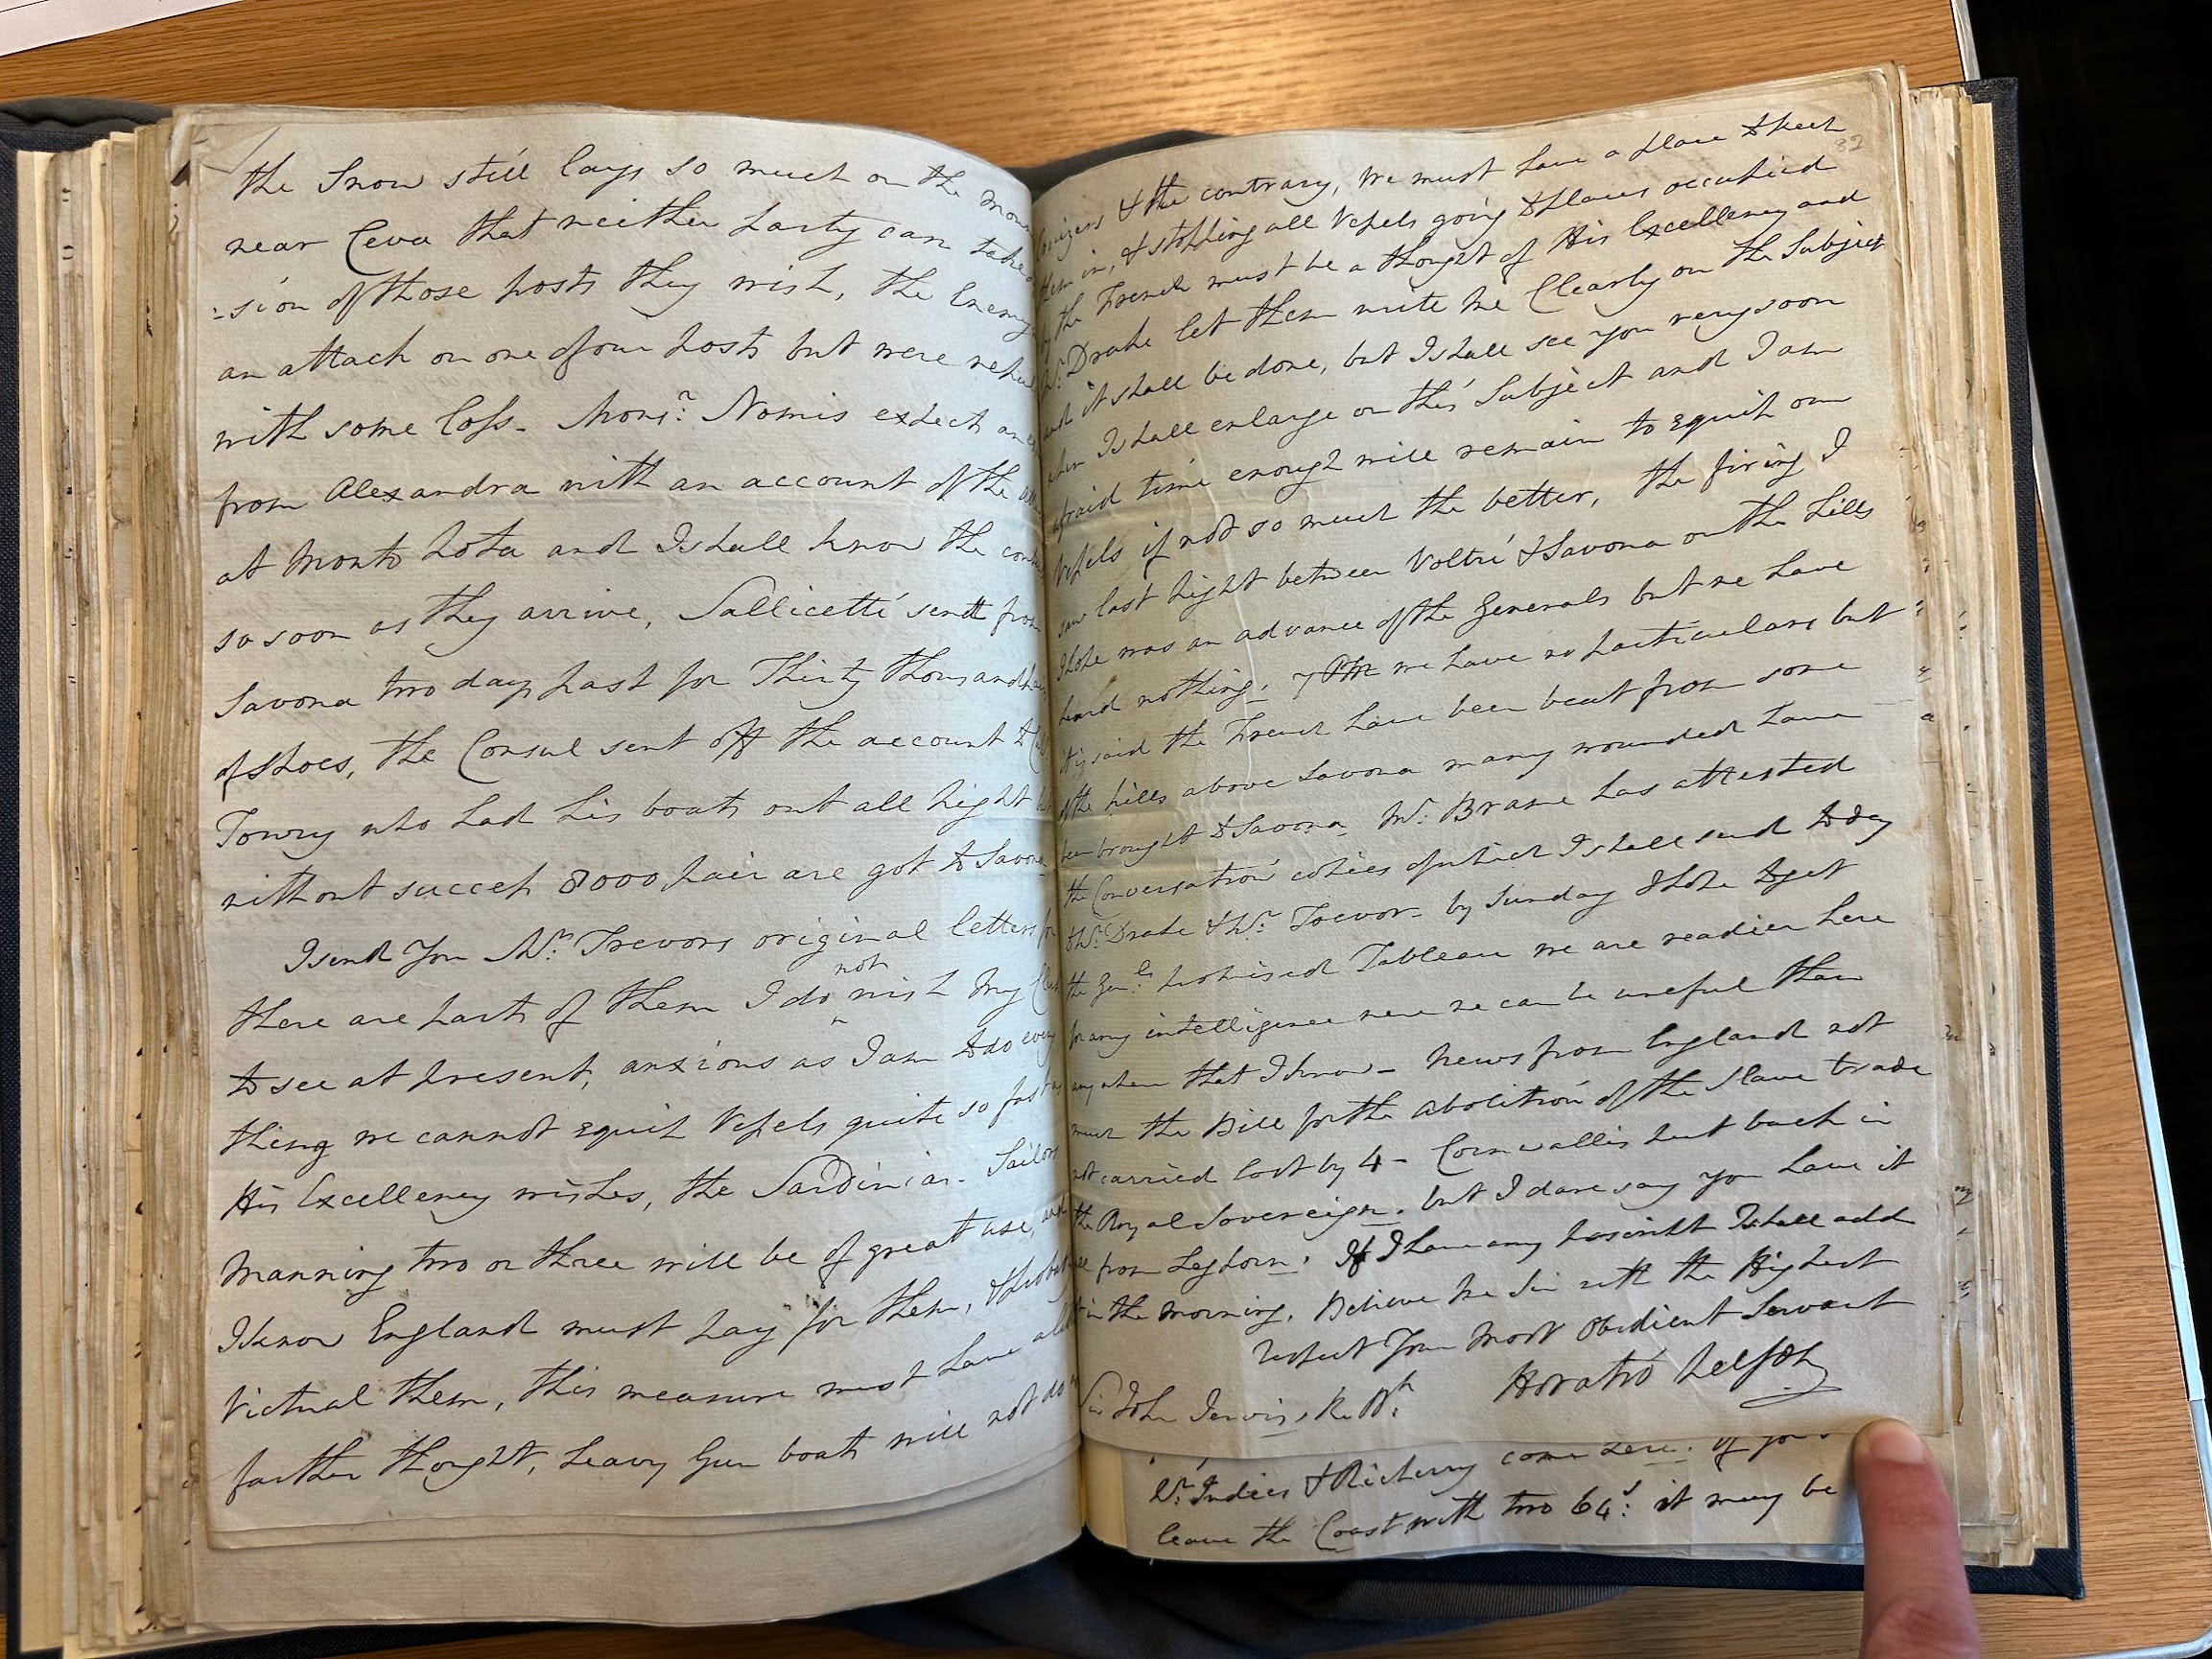 the Snow still lays so much on the
near Ceva that neither party can take
:sion of those posts they wish, the Enemy
an attack on one of our posts but were
with some loss - Monsr. Nomis expects an
from Alexandra with an account of the
at Monto Nota and I shall know the
so soon as they arrive, Sallicetti sent from
Savona two days past for Thirty thousand
of shoes, the Consul sent off the account to
Towry who had his boats out all night
without success 8000 pair are got to Savona
I send You Mr. Trevors original letters for
there are parts of them I do not wish My
to see at present, anxious as I am to do every
thing we cannot equip Vessels quite so fast as
His Excellency wishes, the Sardinian Sailors
Manning two or three will be of great use, and
I know England must pay for them,
Victual them, this measure must have a little
farther thought, heavy Gun boats will not do
32
& the contrary, we must have a place to keep
them in, & stopping all Vessels going to places occupied
by the French must be a thought of His Excellency and
Mr. Drake let them write me Clearly on the Subject
and it shall be done, but I shall see you very soon
when I shall enlarge on this Subject and I am
afraid time enough will remain to equip our
Vessels if not so much the better, the firing I
saw last night between Voltri & Savona on the hills
I hope was an advance of the Generals but we have
heard nothing. 7 PM we have no particulars but
it is said the French have been beat from some
of the hills above Savona many wounded have
been brought to Savona. Mr. Brame has attested
the Conversation copies of which I shall send to day
to Mr. Drake & Mr. Trevor - by Sunday I hope to get
the Genls. promised Tableau we are readier here
for any intelligence were we can be useful than
any where that I know - News from England not
much the Bill for the abolition of the slave trade
not carried lost by 4 - Cornwallis put back in
the Royal Sovereign. but I dare say you have it
all from Leghorn. If I have any postscript I shall add
it in the morning. Believe me Sir with the Highest
respect Your Most Obedient Servant
Horatio Nelson
Sir John Jervis, K. Bh.
Wt. Indies & Richerry come here. if you
leave the Coast with two 64s: it may be